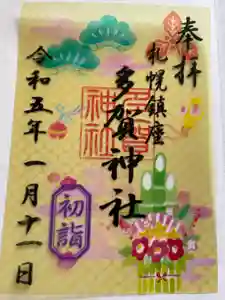 奉拝
札幌鎮座
多賀神社
多賀神社
令和五年一月十一日
初詣